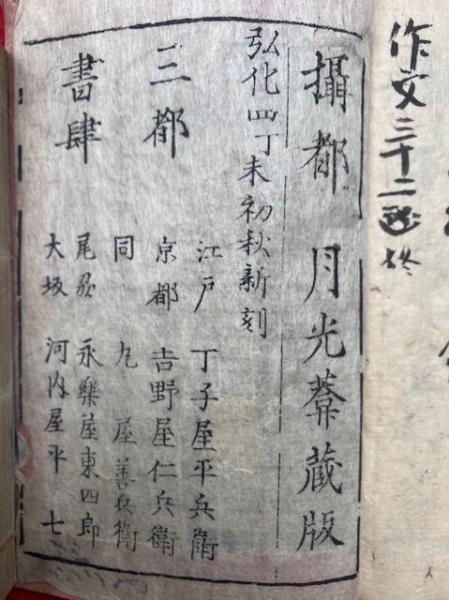 作文三十二 終
攝都 月光蕐蔵版
弘化四丁未初秋新刻
三都
書肆
江戸 丁子屋平兵衛
京都 吉野屋仁兵衛
同 丸屋善兵衛
尾 永樂屋東四郎
大坂 河内屋平七